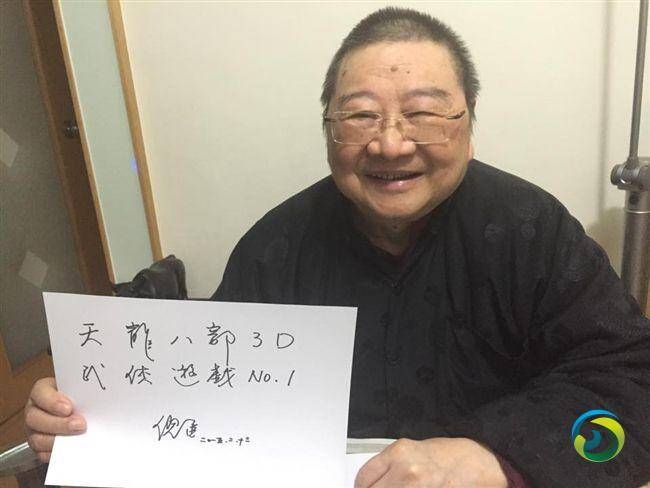 天龍八部3D
武俠遊戲No.1
倪匡
二〇一五.二.十二